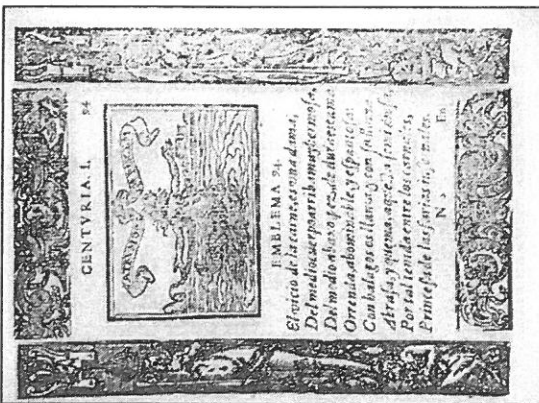 CENTVRIA. I. 94
EMBLEMA 94.
El vicio de la carne, es vna dama,
Del medio cuerpo arriba muy hermosa,
Del medio abaxo pez, de dura escama
Orrenda, abominable, y espantosa:
Con halagos os llama, y con su llama
Abrasa, y quema, aquesta
Por tal tenida entre los
Princesa de las furias
N 2 En